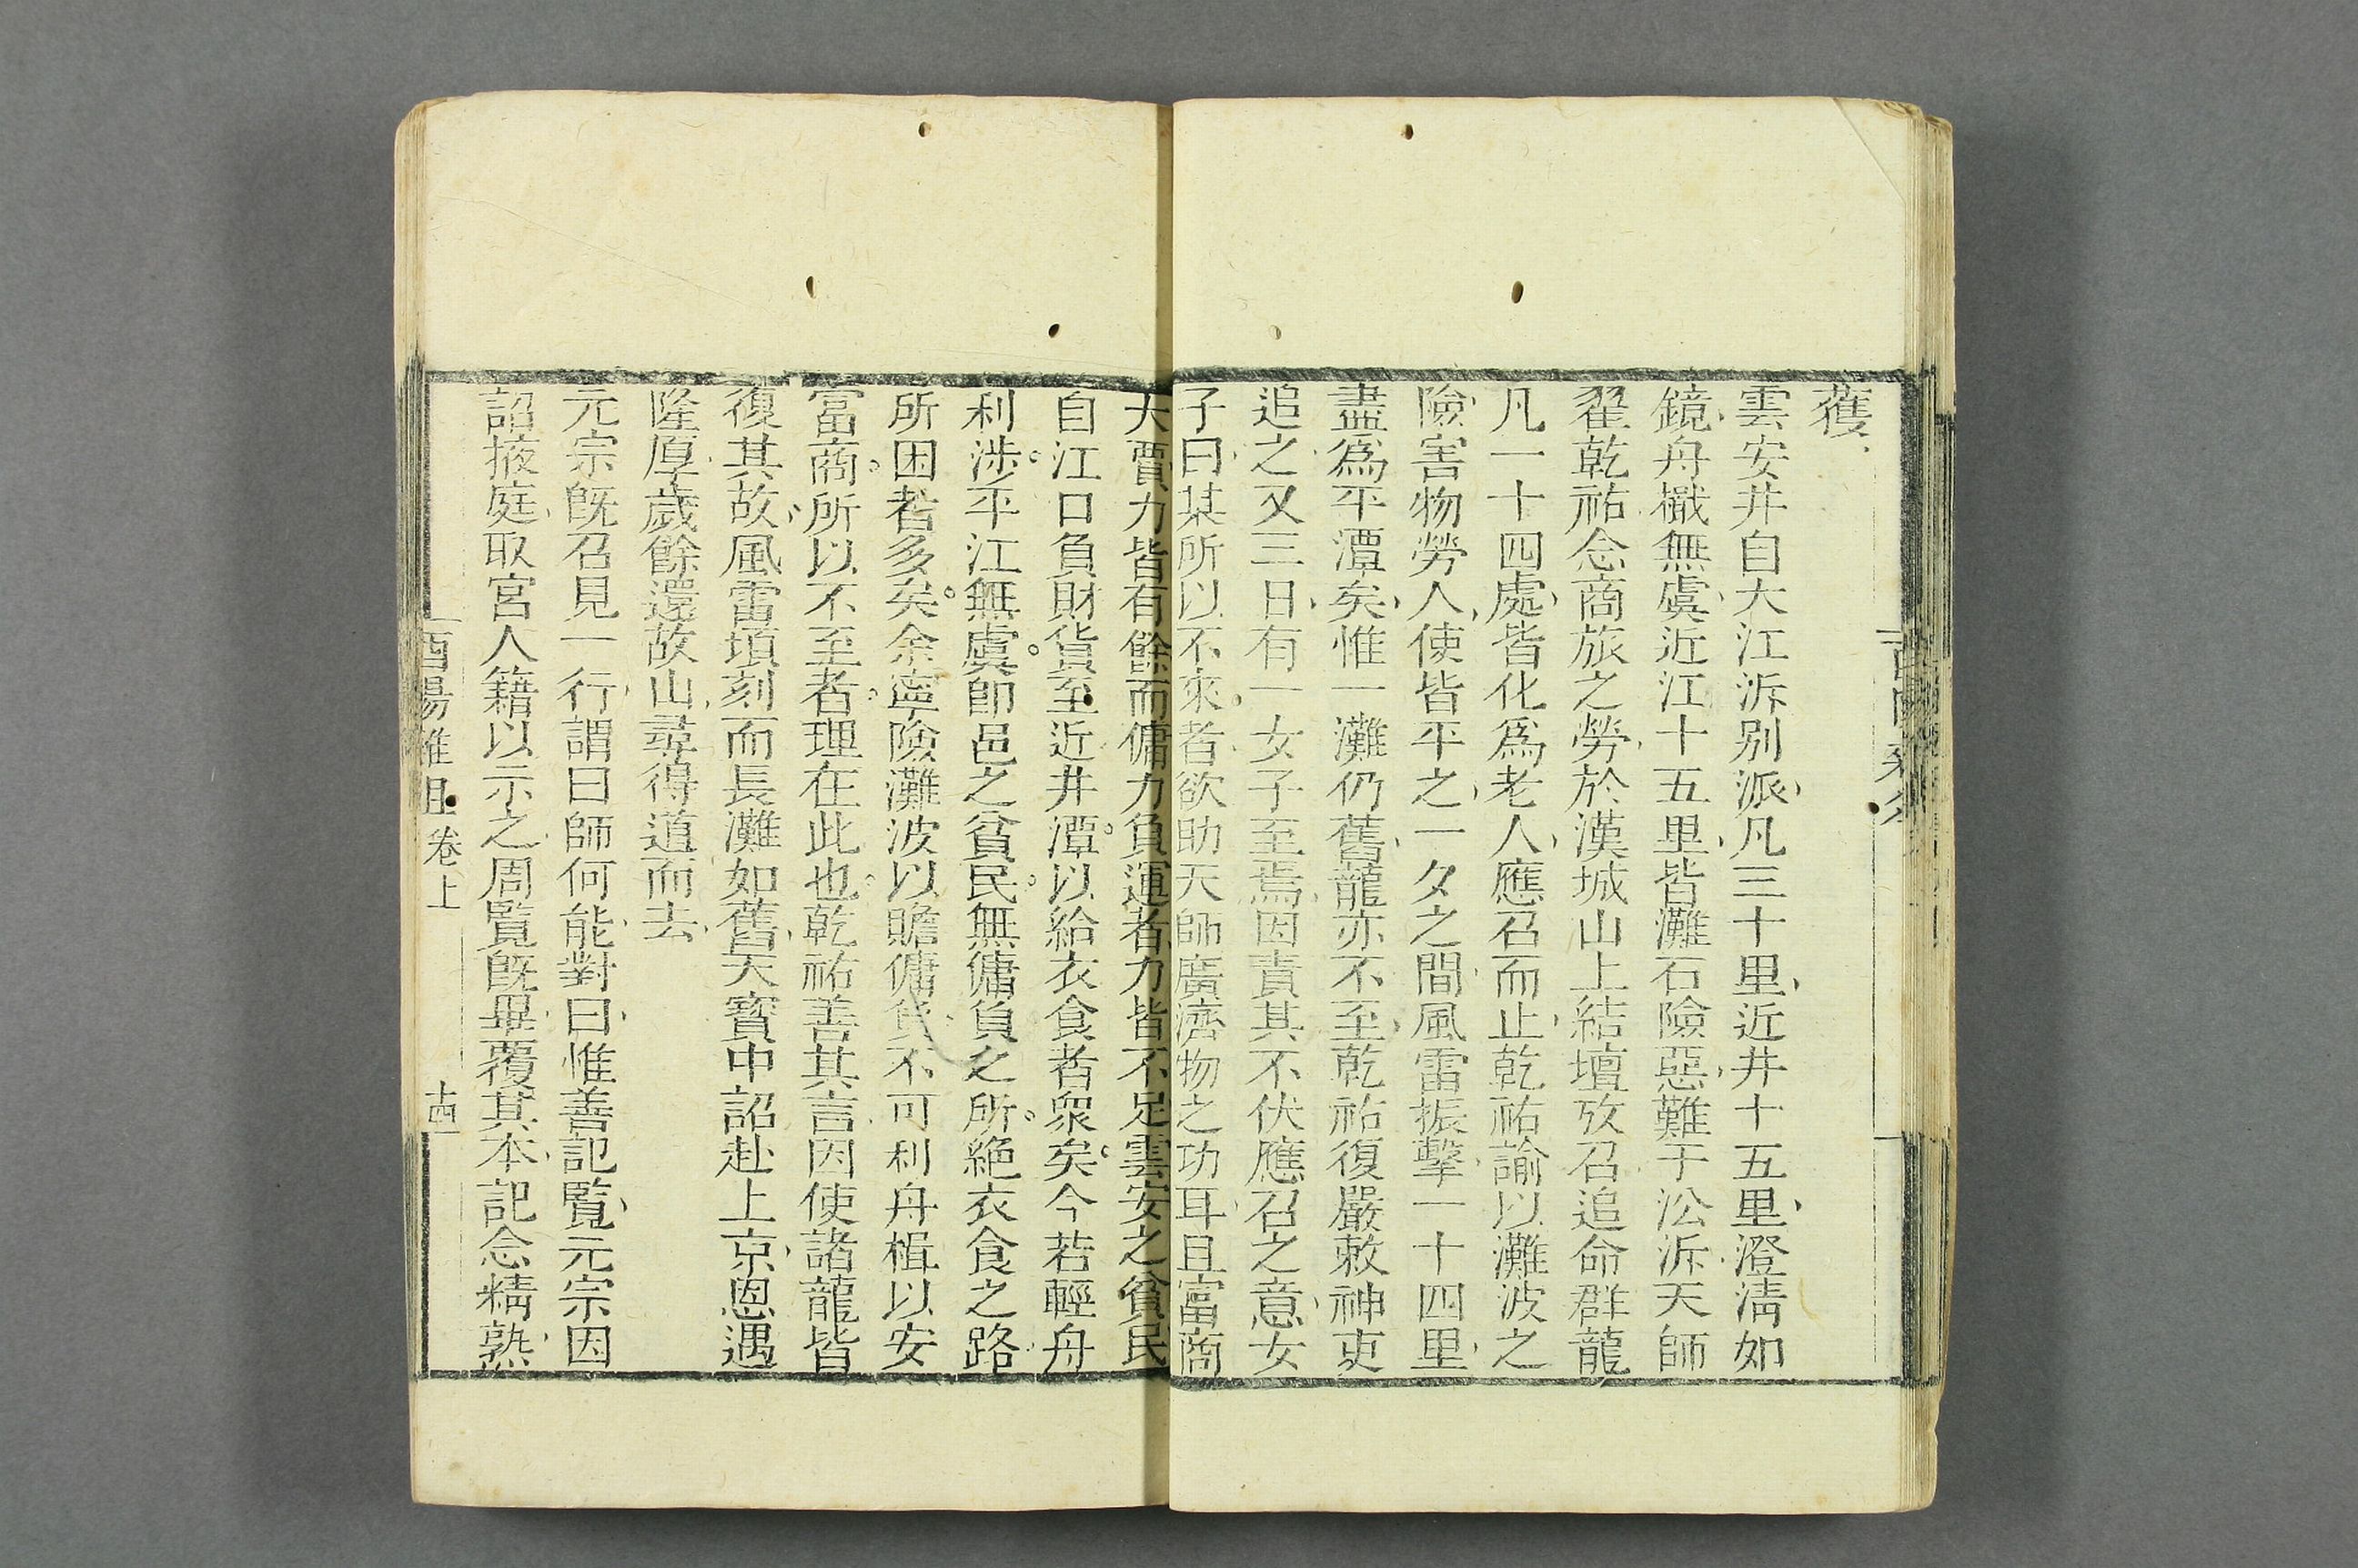 獲
雲安井自大江泝別派凡三十里近井十五里澄淸如
鏡舟檝無虞近江十五里皆灘石險惡難于㳂泝天師
翟乾祐念商旅之勞於漢城山上結壇攷召追命群龍
凡一十四處皆化爲老人應召而止乾祐諭以灘波之
險害物勞人使皆平之一夕之間風雷振擊一十四里
盡爲平潭矣惟一灘仍舊龍亦不至乾祐復嚴敕神吏
追之又三日有一女子至焉因責其不伏應召之意女
子曰某所以不來者欲助天師廣濟物之功耳且富商
大賈力皆有餘而傭力負運者力皆不足雲安之貧民
自江口負財貨至近井潭以給衣食者衆矣今若輕舟
利涉平江無虞卽邑之貧民無傭負之所絶衣食之路
所困者多矣余寧險灘波以贍傭負不可利舟楫以安
富商所以不至者理在此也乾祐善其言因使諸龍皆
復其故風雷頃刻而長灘如舊天寶中詔赴上京恩遇
隆厚歲餘還故山尋得道而去
元宗旣召見一行謂曰師何能對曰惟善記覽元宗因
詔掖庭取宮人籍以示之周覽旣畢覆其本記念精熟
酉陽雜俎 卷上 十四